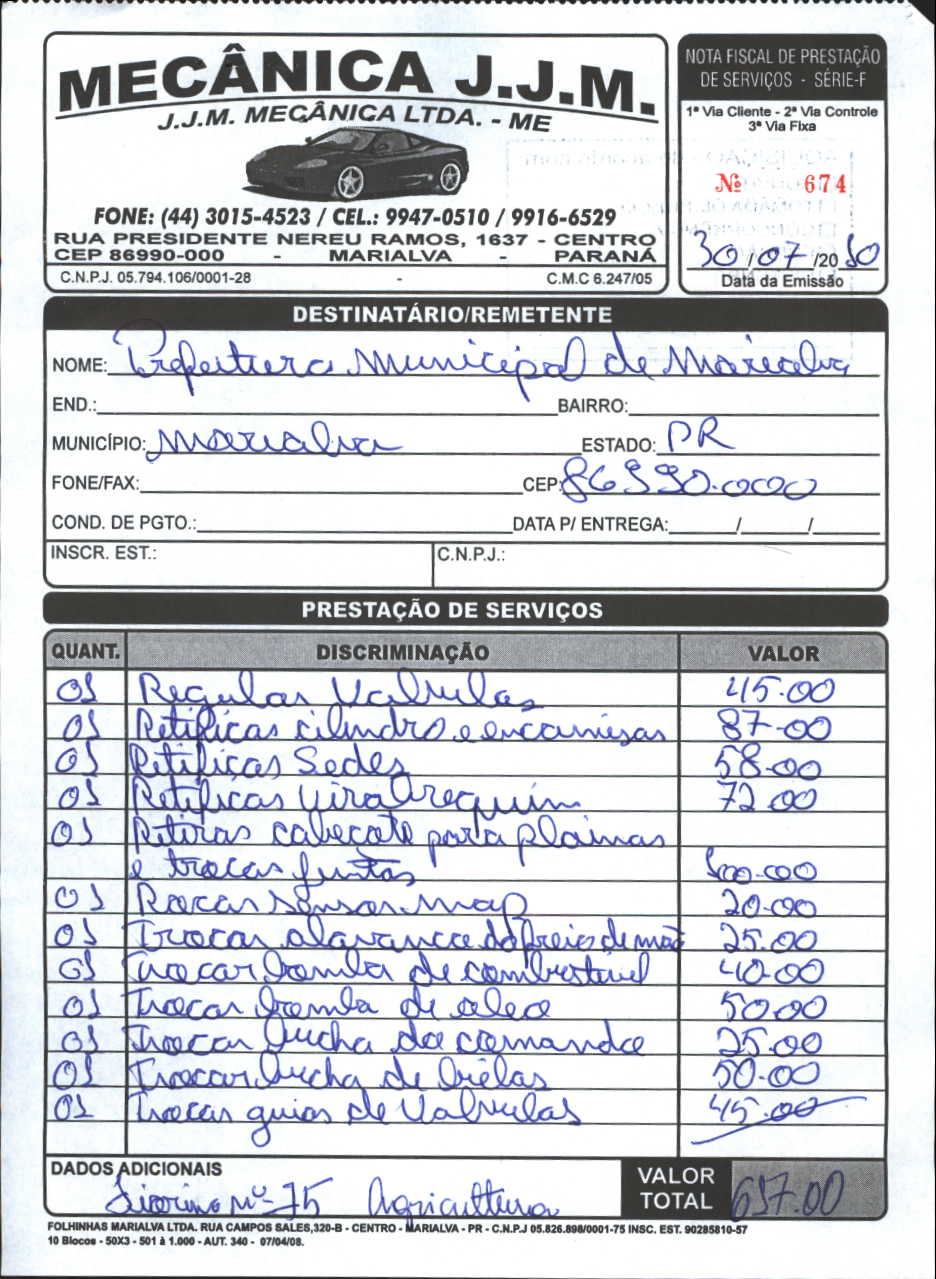 MECÂNICA J.J.M.
J.J.M. MECÂNICA LTDA. - ME
FONE: (44) 3015-4523 / CEL.: 9947-0510 / 9916-6529
RUA PRESIDENTE NEREU RAMOS, 1637 - CENTRO
CEP 86990-000 - MARIALVA - PARANÁ
C.N.P.J. 05.794.106/0001-28 - C.M.C 6.247/05
NOTA FISCAL DE PRESTAÇÃO
DE SERVIÇOS - SÉRIE-F
1ª Via Cliente - 2ª Via Controle
3ª Via Fixa
Nº 674
30/07/20
Data da Emissão
DESTINATÁRIO/REMETENTE
NOME: Prefeitura Municipal de Marialva
END.: BAIRRO:
MUNICÍPIO: Marialva ESTADO: PR
FONE/FAX: CEP: 86990.000
COND. DE PGTO.: DATA P/ ENTREGA: / /
INSCR. EST.: C.N.P.J.:
PRESTAÇÃO DE SERVIÇOS
QUANT. DISCRIMINAÇÃO VALOR
01 Regular Valvulas 45.00
01 Retificas cilindro e encamisar 87.00
01 Retificas Sedes 58.00
01 Retificas Virabrequim 72.00
01 Retiras cabeçote para plainas
e trocas juntas 100.00
01 sensor map 20.00
01 Trocar alavanca do freio de mão 25.00
01 Trocar bomba de combustivel 40.00
01 Trocar bomba de oleo 50.00
01 Trocar bucha do comando 25.00
01 Trocar bucha de bielas 50.00
01 Trocar guias de Valvulas 45.00
DADOS ADICIONAIS
Fiorino nº 75 Agricultura
VALOR
TOTAL 617.00
FOLHINHAS MARIALVA LTDA. RUA CAMPOS SALES,320-B - CENTRO - MARIALVA - PR - C.N.P.J 05.826.898/0001-75 INSC. EST. 90285810-57
10 Blocos - 50X3 - 501 à 1.000 - AUT. 340 - 07/04/08.